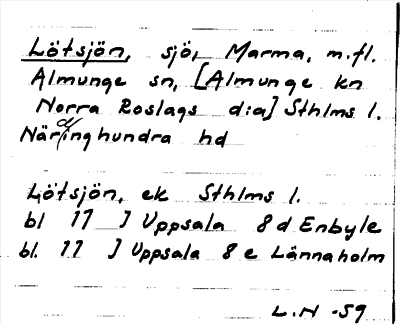 Lötsjön, sjö, Marma, m.fl.
Almunge sn, [Almunge kn
Norra Roslags d:a] Sthlms l.
Närdinghundra hd
Lötsjön, ek Sthlms l.
bl 11 J Uppsala 8 d Enbyle
bl. 11 J Uppsala 8 e Lännaholm
L.N -59